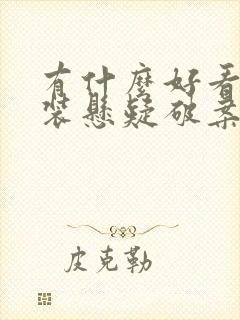 有什麼好看
裝懸疑破案
皮克勒